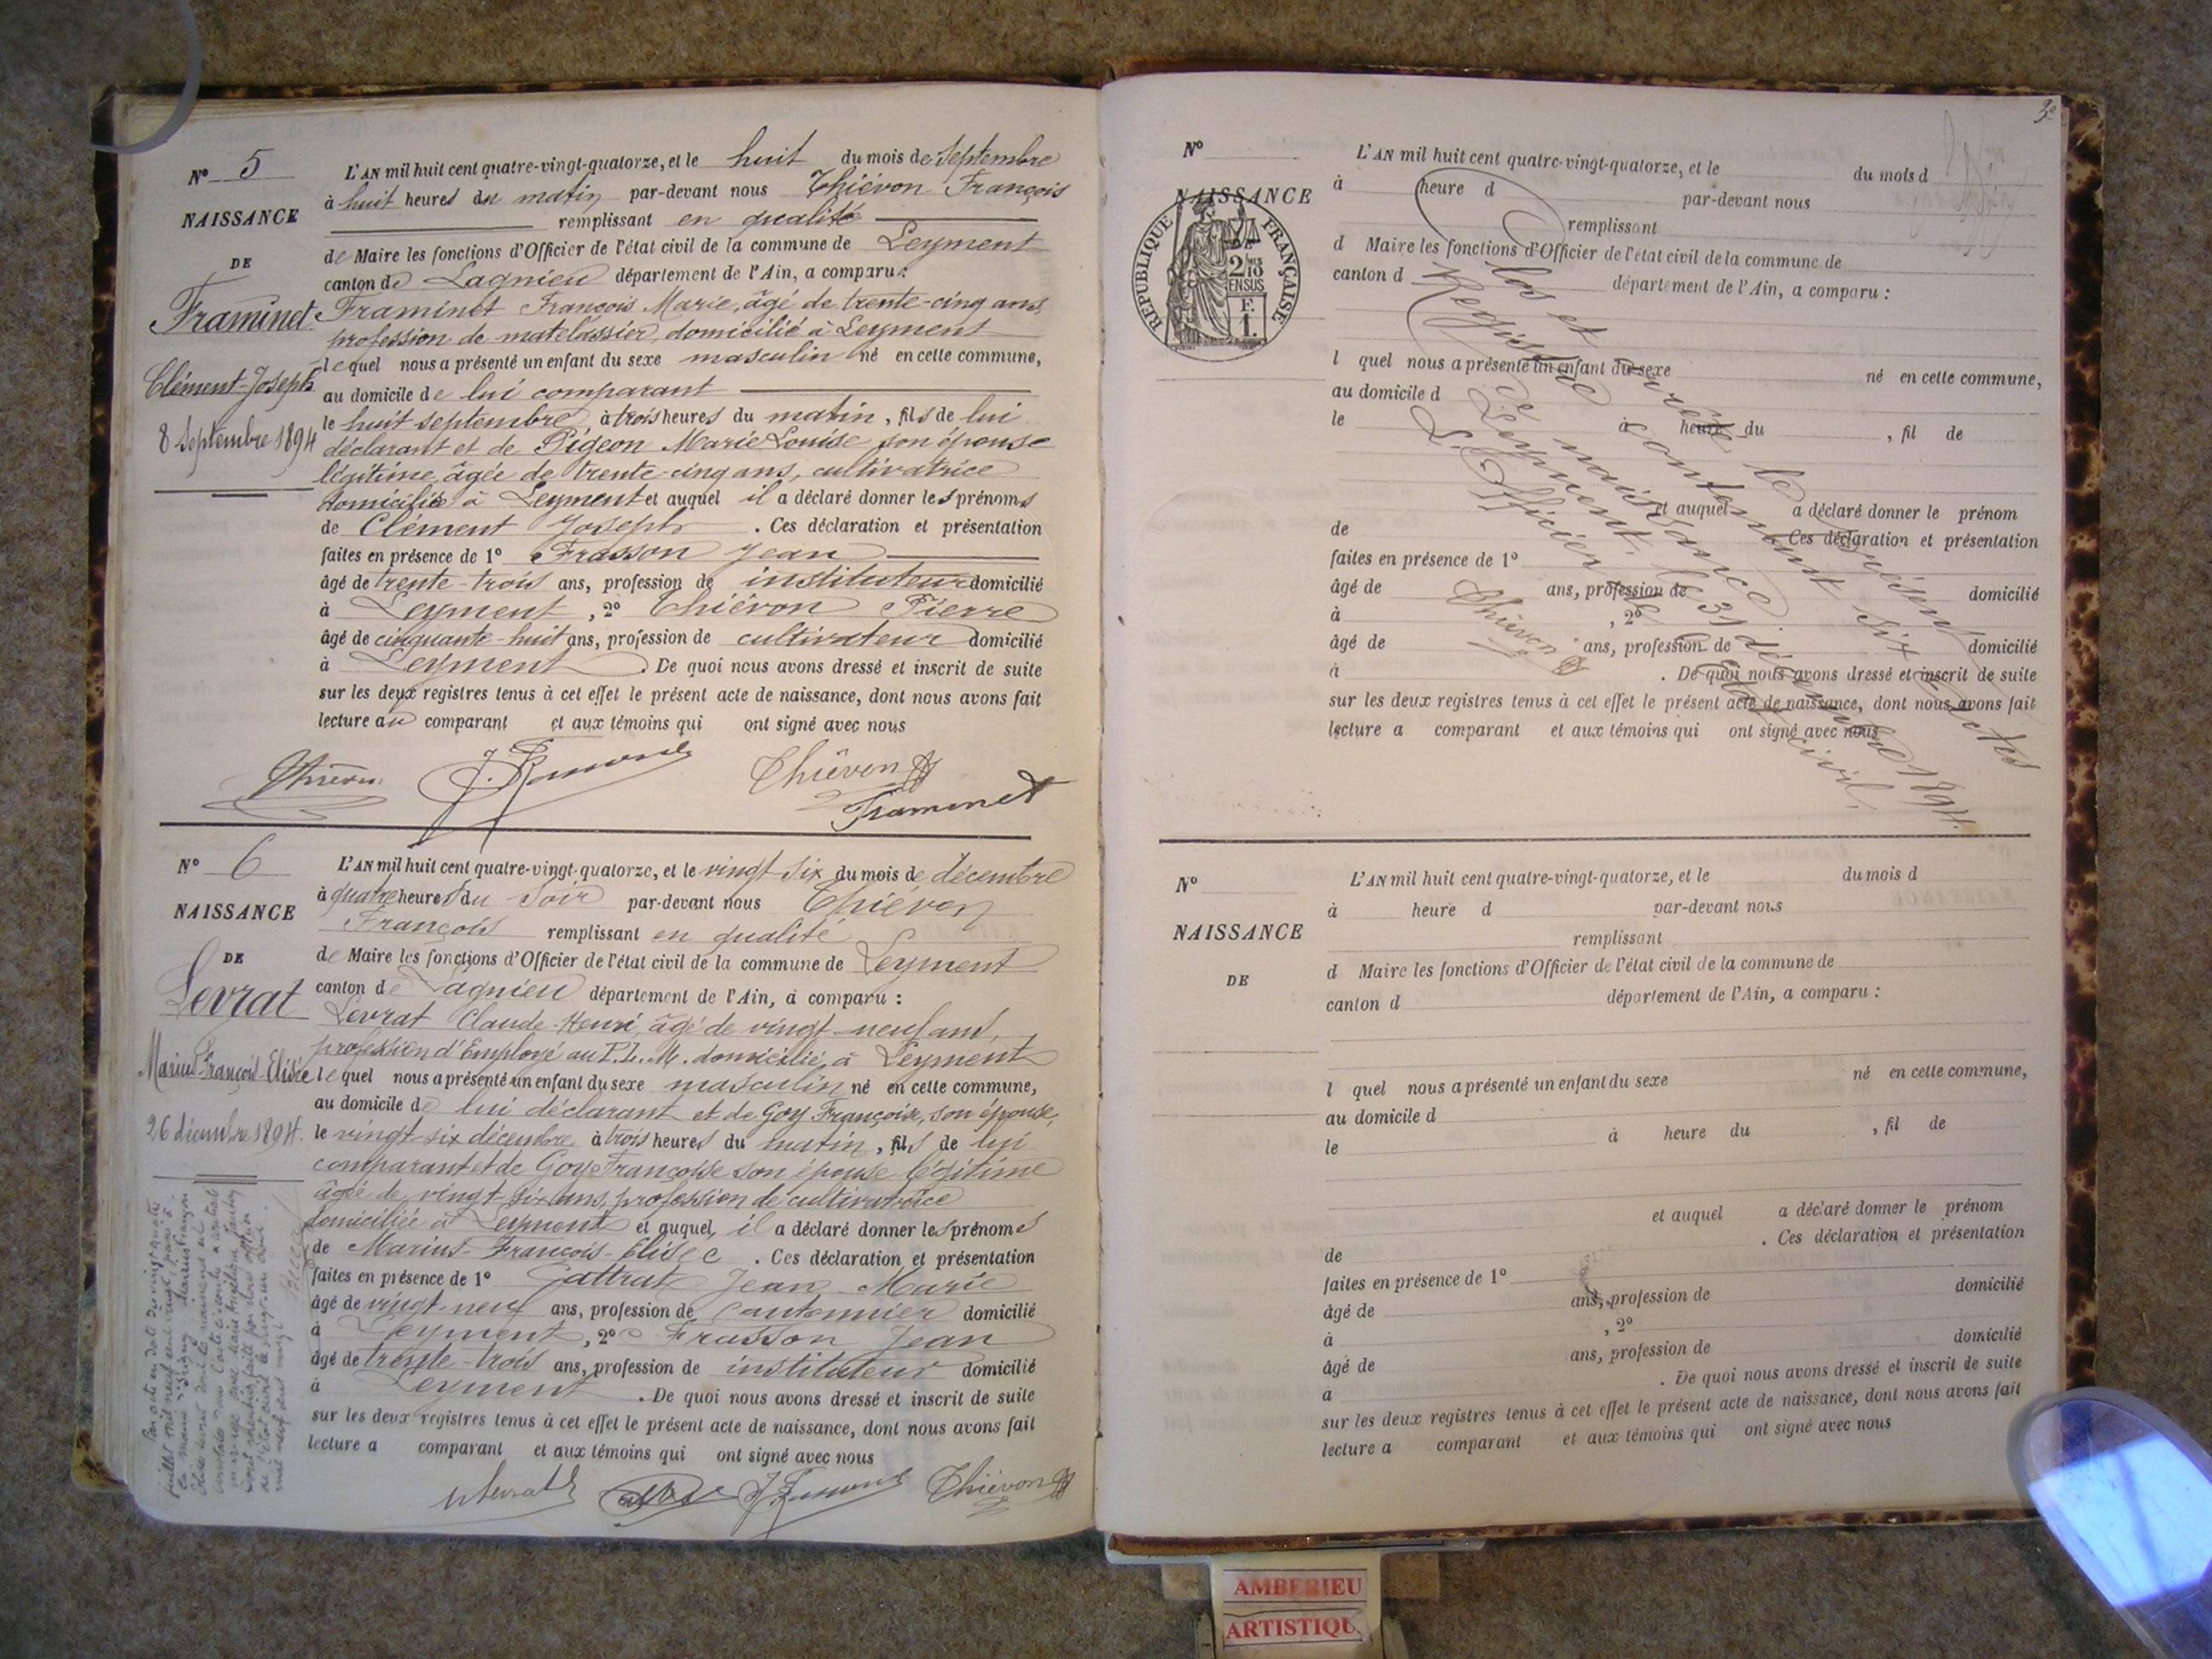 N° 5
NAISSANCE
DE
Framinet
Clément-Joseph
8 Septembre 1894
L'AN mil huit cent quatre-vingt-quatorze, et le huit du mois de Septembre
à huit heures du matin par-devant nous Thiévon François
remplissant en qualité
de Maire les fonctions d'Officier de l'état civil de la commune de Leyment
canton de Lagnieu département de l'Ain, a comparu :
Framinet François Marie, âgé de trente-cinq ans,
profession de matelassier, domicilié à Leyment
lequel nous a présenté un enfant du sexe masculin né en cette commune,
au domicile de lui comparant
le huit septembre, à trois heures du matin, fils de lui
déclarant et de Pigeon Marie Louise son épouse
légitime, âgée de trente-cinq ans, cultivatrice
domiciliée à Leyment et auquel il a déclaré donner les prénoms
de Clément Joseph . Ces déclaration et présentation
faites en présence de 1° Frasson Jean
âgé de trente-trois ans, profession de instituteur domicilié
à Leyment, 2° Thiévon Pierre
âgé de cinquante-huit ans, profession de cultivateur domicilié
à Leyment . De quoi nous avons dressé et inscrit de suite
sur les deux registres tenus à cet effet le présent acte de naissance, dont nous avons fait
lecture au comparant et aux témoins qui ont signé avec nous
Thiévon J. Frasson Thiévon F
Framinet
N° 6
NAISSANCE
DE
Levrat
Marius-François-Elisée
26 décembre 1894.
L'AN mil huit cent quatre-vingt-quatorze, et le vingt six du mois de décembre
à quatre heures du soir par-devant nous Thiévon
François remplissant en qualité
de Maire les fonctions d'Officier de l'état civil de la commune de Leyment
canton de Lagnieu département de l'Ain, a comparu :
Levrat Claude-Henri, âgé de vingt-neuf ans,
profession d'Employé au P.L.M. domicilié à Leyment
lequel nous a présenté un enfant du sexe masculin né en cette commune,
au domicile de lui déclarant et de Goy Françoise, son épouse,
le vingt-six décembre à trois heures du matin, fils de lui
comparant et de Goy Françoise son épouse légitime
âgé de vingt-six ans, profession de cultivatrice
domiciliée à Leyment et auquel il a déclaré donner les prénoms
de Marius-François-Elisée . Ces déclaration et présentation
faites en présence de 1° Jean Marie
âgé de vingt-neuf ans, profession de Cantonnier domicilié
à Leyment, 2° Frasson Jean
âgé de trente-trois ans, profession de instituteur domicilié
à Leyment . De quoi nous avons dressé et inscrit de suite
sur les deux registres tenus à cet effet le présent acte de naissance, dont nous avons fait
lecture a comparant et aux témoins qui ont signé avec nous
Levrat J. Frasson Thiévon F
3e
N°
NAISSANCE
REPUBLIQUE FRANÇAISE
2/10 EN SUS
F. 1.
L'AN mil huit cent quatre-vingt-quatorze, et le du mois d
à heure d par-devant nous
remplissant
d Maire les fonctions d'Officier de l'état civil de la commune de
canton d département de l'Ain, a comparu :
l quel nous a présenté un enfant du sexe né en cette commune,
au domicile d
le à heure du , fil de
et auquel a déclaré donner le prénom
de . Ces déclaration et présentation
faites en présence de 1°
âgé de ans, profession de domicilié
à , 2°
âgé de ans, profession de domicilié
à . De quoi nous avons dressé et inscrit de suite
sur les deux registres tenus à cet effet le présent acte de naissance, dont nous avons fait
lecture a comparant et aux témoins qui ont signé avec nous
Clos et arrêté le présent
Registre contenant six actes
de naissance
Leyment, le 31 décembre 1894.
L'Officier de l'état civil,
Thiévon F
N°
NAISSANCE
DE
L'AN mil huit cent quatre-vingt-quatorze, et le du mois d
à heure d par-devant nous
remplissant
d Maire les fonctions d'Officier de l'état civil de la commune de
canton d département de l'Ain, a comparu :
l quel nous a présenté un enfant du sexe né en cette commune,
au domicile d
le à heure du , fil de
et auquel a déclaré donner le prénom
de . Ces déclaration et présentation
faites en présence de 1°
âgé de ans, profession de domicilié
à , 2°
âgé de ans, profession de domicilié
à . De quoi nous avons dressé et inscrit de suite
sur les deux registres tenus à cet effet le présent acte de naissance, dont nous avons fait
lecture a comparant et aux témoins qui ont signé avec nous
AMBERIEU
ARTISTIQU